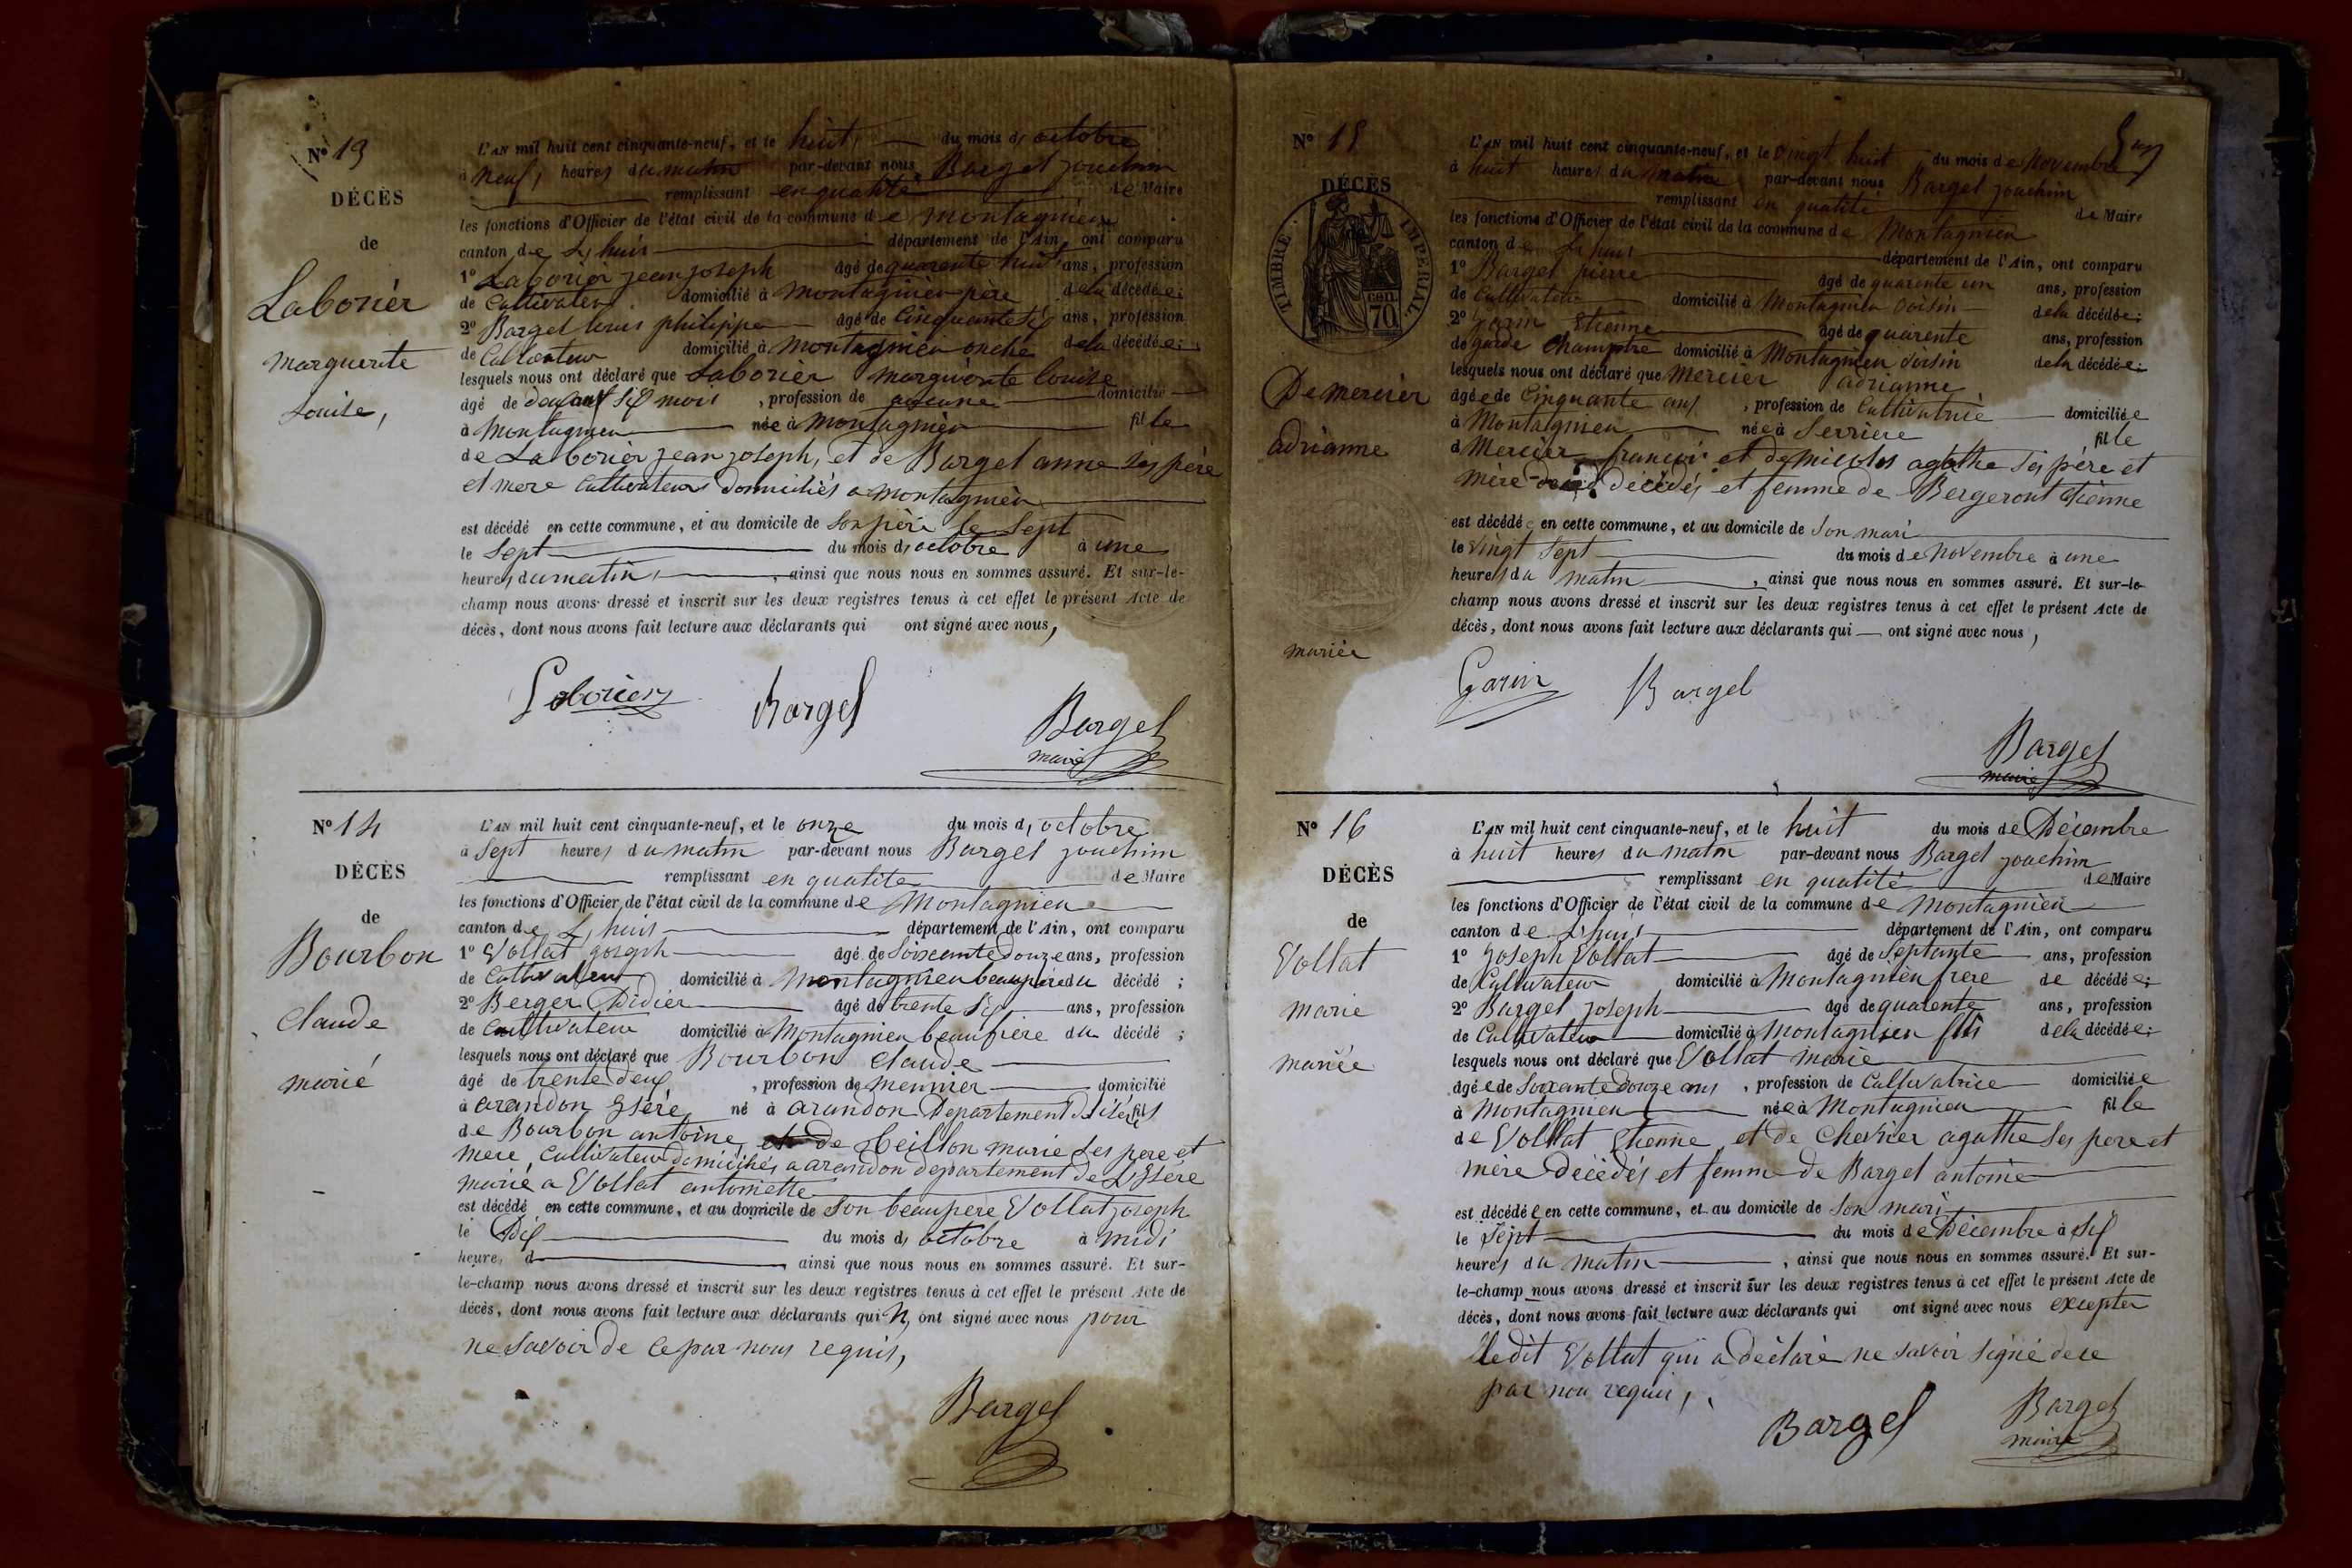 N° 13
DÉCÈS
de
Laborier
marguerite
Louise,
L'AN mil huit cent cinquante-neuf, et le huit, du mois d, octobre
à neuf, heures du matin par-devant nous Bargel jouchim
remplissant en qualité de Maire
les fonctions d'Officier de l'état civil de la commune de montagnieu
canton de L,huis département de l'Ain, ont comparu
1° Laborier jean joseph âgé de quarente huit ans, profession
de Cultivateur domicilié à montagnieu père de la décédée;
2° Bargel louis philippe âgé de Cinquante Six ans, profession
de Cultivateur domicilié à montagnieu oncle de la décédée;
lesquels nous ont déclaré que Laborier marguerite louise
âgé de deux ans Six mois, profession de aucune domicilié
à Montagnieu née à Montagnieu fille
de Laborier jean joseph, et de Bargel anne ses père
et mere Cultivateurs domiciliés a montagnieu
est décédé en cette commune, et au domicile de Son père le Sept
le Sept du mois d, octobre à une
heures du matin, ainsi que nous nous en sommes assuré. Et sur-le-
champ nous avons dressé et inscrit sur les deux registres tenus à cet effet le présent Acte de
décès, dont nous avons fait lecture aux déclarants qui ont signé avec nous,
Laborier Bargel
Bargel
maire
N° 14
DÉCÈS
de
Bourbon
Claude
marié
L'AN mil huit cent cinquante-neuf, et le onze du mois d, octobre
à Sept heures du matin par-devant nous Bargel jouchim
remplissant en qualité de Maire
les fonctions d'Officier de l'état civil de la commune de Montagnieu
canton de L,huis département de l'Ain, ont comparu
1° Vollat joseph âgé de Soixente douze ans, profession
de Cultivateur domicilié à Montagnieu beaupère du décédé ;
2° Berger Didier âgé de trente Six ans, profession
de Cultivateur domicilié à Montagnieu beaufrère du décédé ;
lesquels nous ont déclaré que Bourbon Claude
âgé de trente deux, profession de meunier domicilié
à arandon Isère né à arandon Département de l'isère fils
de Bourbon antoine, et de Teillon marie ses pere et
mere, Cultivateur domiciliés a arandon departement de L'Isère
marié a Vollat antoniette
est décédé en cette commune, et au domicile de Son beaupère Vollat joseph
le Dix du mois d, octobre à midi
heure, d ainsi que nous nous en sommes assuré. Et sur-
le-champ nous avons dressé et inscrit sur les deux registres tenus à cet effet le présent Acte de
décès, dont nous avons fait lecture aux déclarants qui n, ont signé avec nous pour
ne Savoir de ce par nous requis,
Bargel
N° 15
DÉCÈS
TIMBRE IMPERIAL
cen. 70
De mercier
adrianne
mariée
L'AN mil huit cent cinquante-neuf, et le vingt huit du mois de Novembre
à huit heures du matin par-devant nous Bargel joachim
remplissant en qualité de Maire
les fonctions d'Officier de l'état civil de la commune de Montagnieu
canton de L,huis département de l'Ain, ont comparu
1° Bargel pierre âgé de quarente un ans, profession
de Cultivateur domicilié à Montagnieu voisin de la décédée;
2° garin Etienne âgé de quarente ans, profession
de garde Champtre domicilié à Montagnieu voisin de la décédée;
lesquels nous ont déclaré que Mercier adrianne
âgée de Cinquante ans, profession de Cultivatrice domiciliée
à Montagnieu née à Serriere fille
d Mercier francoi et de nicolas agathe ses père et
mère décédés et femme de Bergeront etienne
est décédé en cette commune, et au domicile de Son mari
le vingt Sept du mois de Novembre à une
heures du matin, ainsi que nous nous en sommes assuré. Et sur-le-
champ nous avons dressé et inscrit sur les deux registres tenus à cet effet le présent Acte de
décès, dont nous avons fait lecture aux déclarants qui ont signé avec nous,
Garin Bargel
Bargel
maire
N° 16
DÉCÈS
de
Vollat
marie
mariée
L'AN mil huit cent cinquante-neuf, et le huit du mois de Décembre
à huit heures du matin par-devant nous Bargel jouchim
remplissant en qualité de Maire
les fonctions d'Officier de l'état civil de la commune de Montagnieu
canton de L,huis département de l'Ain, ont comparu
1° Joseph Vollat âgé de Septante ans, profession
de Cultivateur domicilié à Montagnieu frere de décédée;
2° Bargel joseph âgé de quarente ans, profession
de Cultivateur domicilié à Montagnieu fils de la décédée;
lesquels nous ont déclaré que Vollat marie
âgée de Soixante douze ans, profession de Cultivatrice domiciliée
à Montagnieu née à Montagnieu fille
de Vollat Etienne, et de Chevrier agathe Ses pere et
mère décédés et femme de Bargel antoine
est décédée en cette commune, et au domicile de Son mari
le Sept du mois de Décembre à Six
heures du matin, ainsi que nous nous en sommes assuré. Et sur-
le-champ nous avons dressé et inscrit sur les deux registres tenus à cet effet le présent Acte de
décès, dont nous avons fait lecture aux déclarants qui ont signé avec nous excepter
ledit Vollat qui a déclaré ne savoir signé de ce
par nou requis,
Bargel Bargel
maire